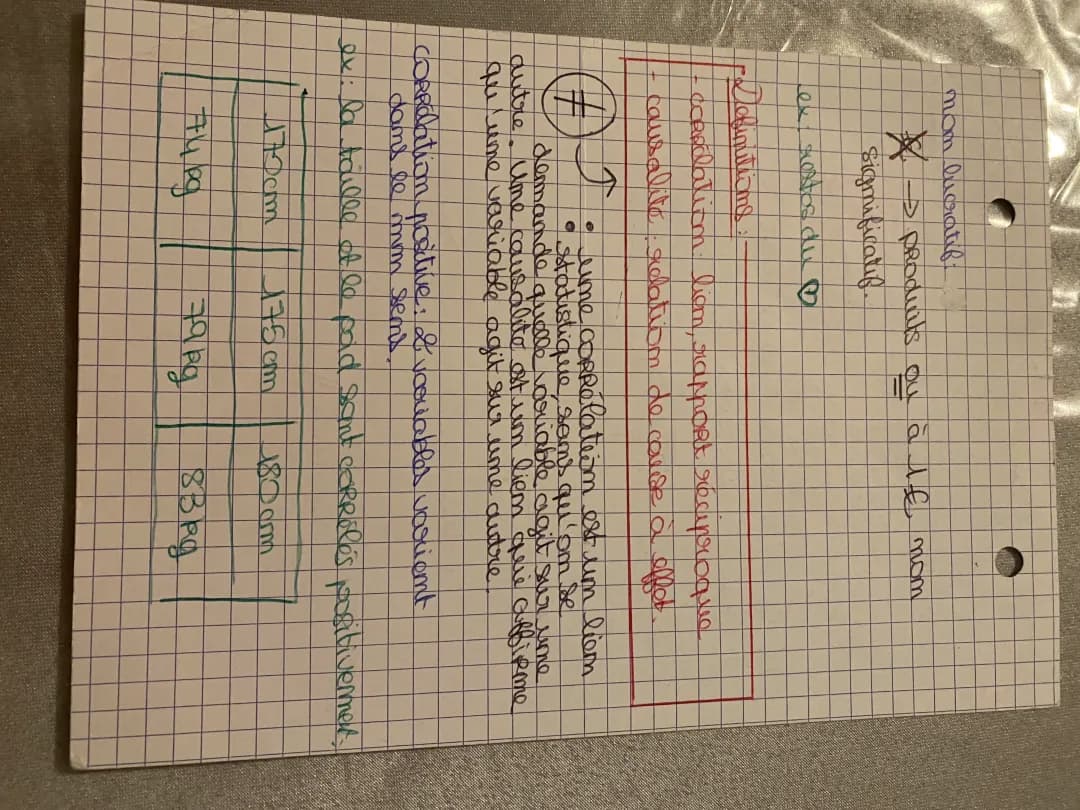 non lucratif:
→ produits ou à 1€ non
significatif.
ex: restos du ♡
Définitions:
- corrélation: lien, rapport réciproque
- causalité: relation de cause à effet.
≠ • une corrélation est un lien
• statistique, sans qu'on se
demande quelle variable agit sur une
autre. Une causalité est un lien quie affirme
qu'une variable agit sur une autre.
corrélation positive: 2 variables varient
dans le mm sens.
ex: la taille et le poid sont corrélés positivement.
170cm 175cm 180cm
74kg 79kg 83kg